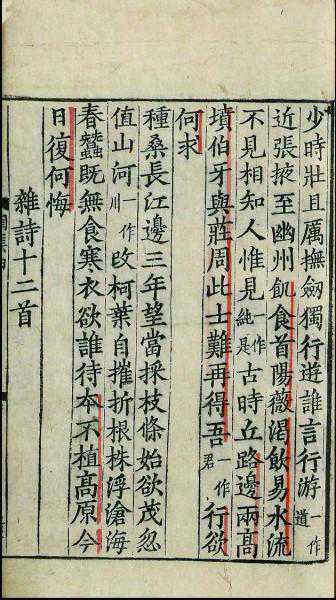 少時壯且厲撫劒獨行遊誰言行游一作道
近張掖至幽州飢食首陽薇渴飲易水流
不見相知人惟見一作純是古時丘路邊兩高
墳伯牙與莊周此士難再得吾一作君行欲
何求
種桑長江邊三年望當採枝條始欲茂忽
值山河一作川改柯葉自摧折根株浮滄海
春蠶既無食寒衣欲誰待本不植高原今
日復何悔
雜詩十二首